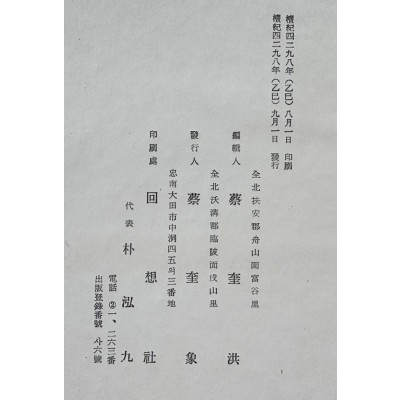 檀紀四二九八年(乙巳)八月一日 印刷
檀紀四二九八年(乙巳)九月一日 發行
全北扶安郡舟山面富谷里
編輯人 蔡奎洪
全北沃溝郡臨陂面戍山里
發行人 蔡奎象
忠南大田市中洞四五의三番地
印刷處 回想社
代表 朴泓九
電話 ②一、二六三番
出版登錄番號 사六號